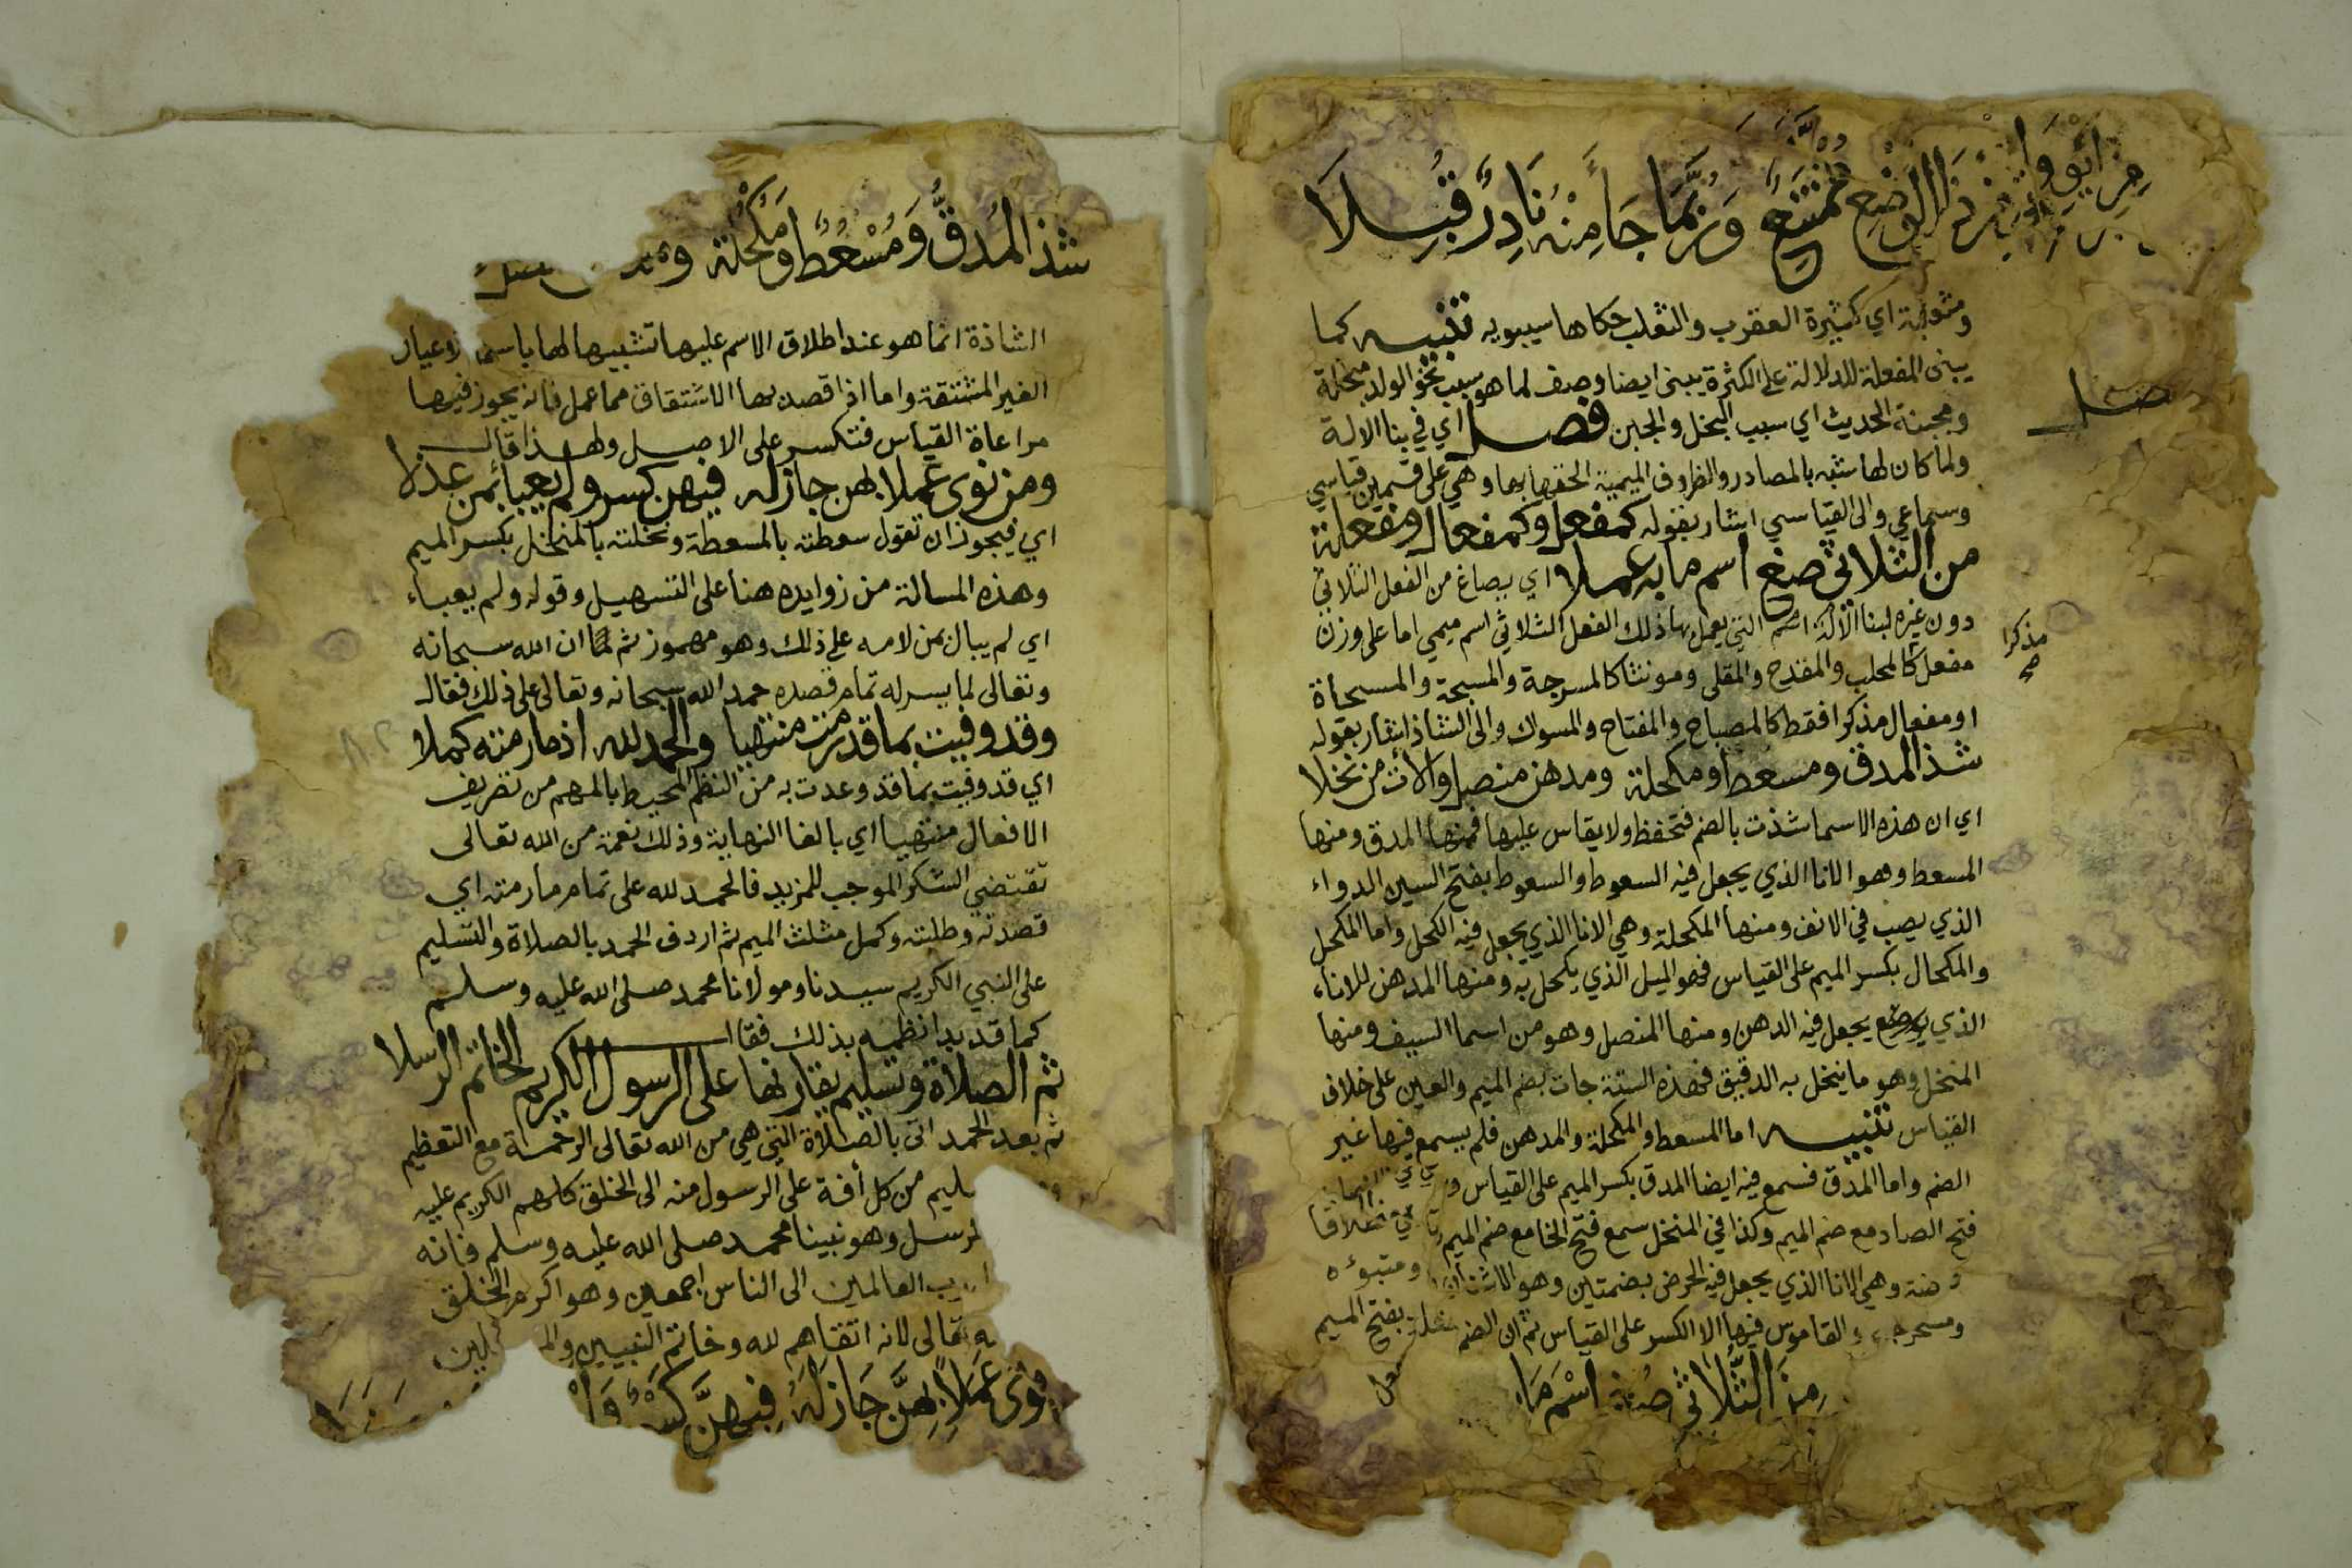 الوضع ممتنع وربما جاء منه نادر قبلا
ومثعلبة اي كثيرة العقرب والثعلب حكاها سيبويه تنبيه كما
يبنى المفعلة للدلالة على الكثرة يبنى ايضا وصف لما هو سبب نحو الولد مبخلة
ومجبنة الحديث اي سبب البخل والجبن فصل اي في بنا الالة
ولما كان لها شبه بالمصادر والظروف الميمية الحقها بها وهي على قسمين قياسي
وسماعي والى القياسي اشار بقوله كمفعل وكمفعال ومفعلة
من الثلاثي صغ اسم ما به عملا اي يصاغ من الفعل الثلاثي
دون غيره لبنا الالة اسم التي يعمل بها ذلك الفعل الثلاثي اسم ميمي اما على وزن
مفعل كالمحلب والمقدح والمقلى ومونثا كالمسرجة والمسبحة والمسحاة
او مفعال مذكرا فقط كالمصباح والمفتاح والمسواك والى الشاذ اشار بقوله
شذ المدق ومسعط ومكحلة ومدهن منصل والات من نخلا
اي ان هذه الاسما شذت بالضم فتحفظ ولا يقاس عليها فمنها المدق ومنها
المسعط وهو الانا الذي يجعل فيه السعوط والسعوط بفتح السين الدواء
الذي يصب في الانف ومنها المكحلة وهي الانا الذي يجعل فيه الكحل واما المكحل
والمكحال بكسر الميم على القياس فهو الميل الذي يكحل به ومنها المدهن للاناء
الذي يوضع يجعل فيه الدهن ومنها المنصل وهو من اسما السيف ومنها
المنخل وهو ما ينخل به الدقيق فهذه الستة جات بضم الميم والعين على خلاف
القياس تنبيه اما المسعط والمكحلة والمدهن فلم يسمع فيها غير
الضم واما المدق فسمع فيه ايضا المدق بكسر الميم على القياس
فتح الصاد مع ضم الميم وكذا في المنخل سمع فتح الخا مع ضم الميم
وهي الانا الذي يجعل فيه الحرض بضمتين وهو الاشنان
القاموس فيها الا الكسر على القياس ثم ان الضم بفتح الميم
من الثلاثي صغ اسم ما
فصل
مذكرا
صح
شذ المدق ومسعط ومكحلة
الشاذة انما هو عند اطلاق الاسم عليها تشبيها لها باسما الاعيان
الغير المشتقة واما اذا قصد بها الاشتقاق مما عمل فانه يجوز فيها
مراعاة القياس فتكسر على الاصل ولهذا قال
ومن نوى عملا بهن جاز له فيهن كسر ولم يعبا بمن عذلا
اي فيجوز ان تقول سعطته بالمسعطة ونخلته بالمنخل بكسر الميم
وهذه المسالة من زوايده هنا على التسهيل وقوله ولم يعباء
اي لم يبال بمن لامه على ذلك وهو مهموز ثم لما ان الله سبحانه
وتعالى لما يسر له تمام قصده حمد الله سبحانه وتعالى على ذلك فقال
وقد وفيت بما قد رمت منتهيا والحمد لله اذ ما رمته كملا
اي قد وفيت بما قد وعدت به من النظم المحيط بالمهم من تصريف
الافعال منتهيا اي بالغا النهاية وذلك نعمة من الله تعالى
تقتضي الشكر الموجب للمزيد فالحمد لله على تمام ما رمته اي
قصدته وطلبته وكمل مثلث الميم ثم اردف الحمد بالصلاة والتسليم
على النبي الكريم سيدنا ومولانا محمد صلى الله عليه وسلم
كما قد بدا نظمه بذلك فقال
ثم الصلاة وتسليم يقارنها على الرسول الكريم الخاتم الرسلا
ثم بعد الحمد اتى بالصلاة التي هي من الله تعالى الرحمة مع التعظيم
من كل أفة على الرسول منه الى الخلق كلهم الكريم عليه
وهو نبينا محمد صلى الله عليه وسلم فانه
العالمين الى الناس اجمعين وهو اكرم الخلق
تعالى لانه اتقاهم لله وخاتم النبيين
نوى عملا بهن جاز له فيهن